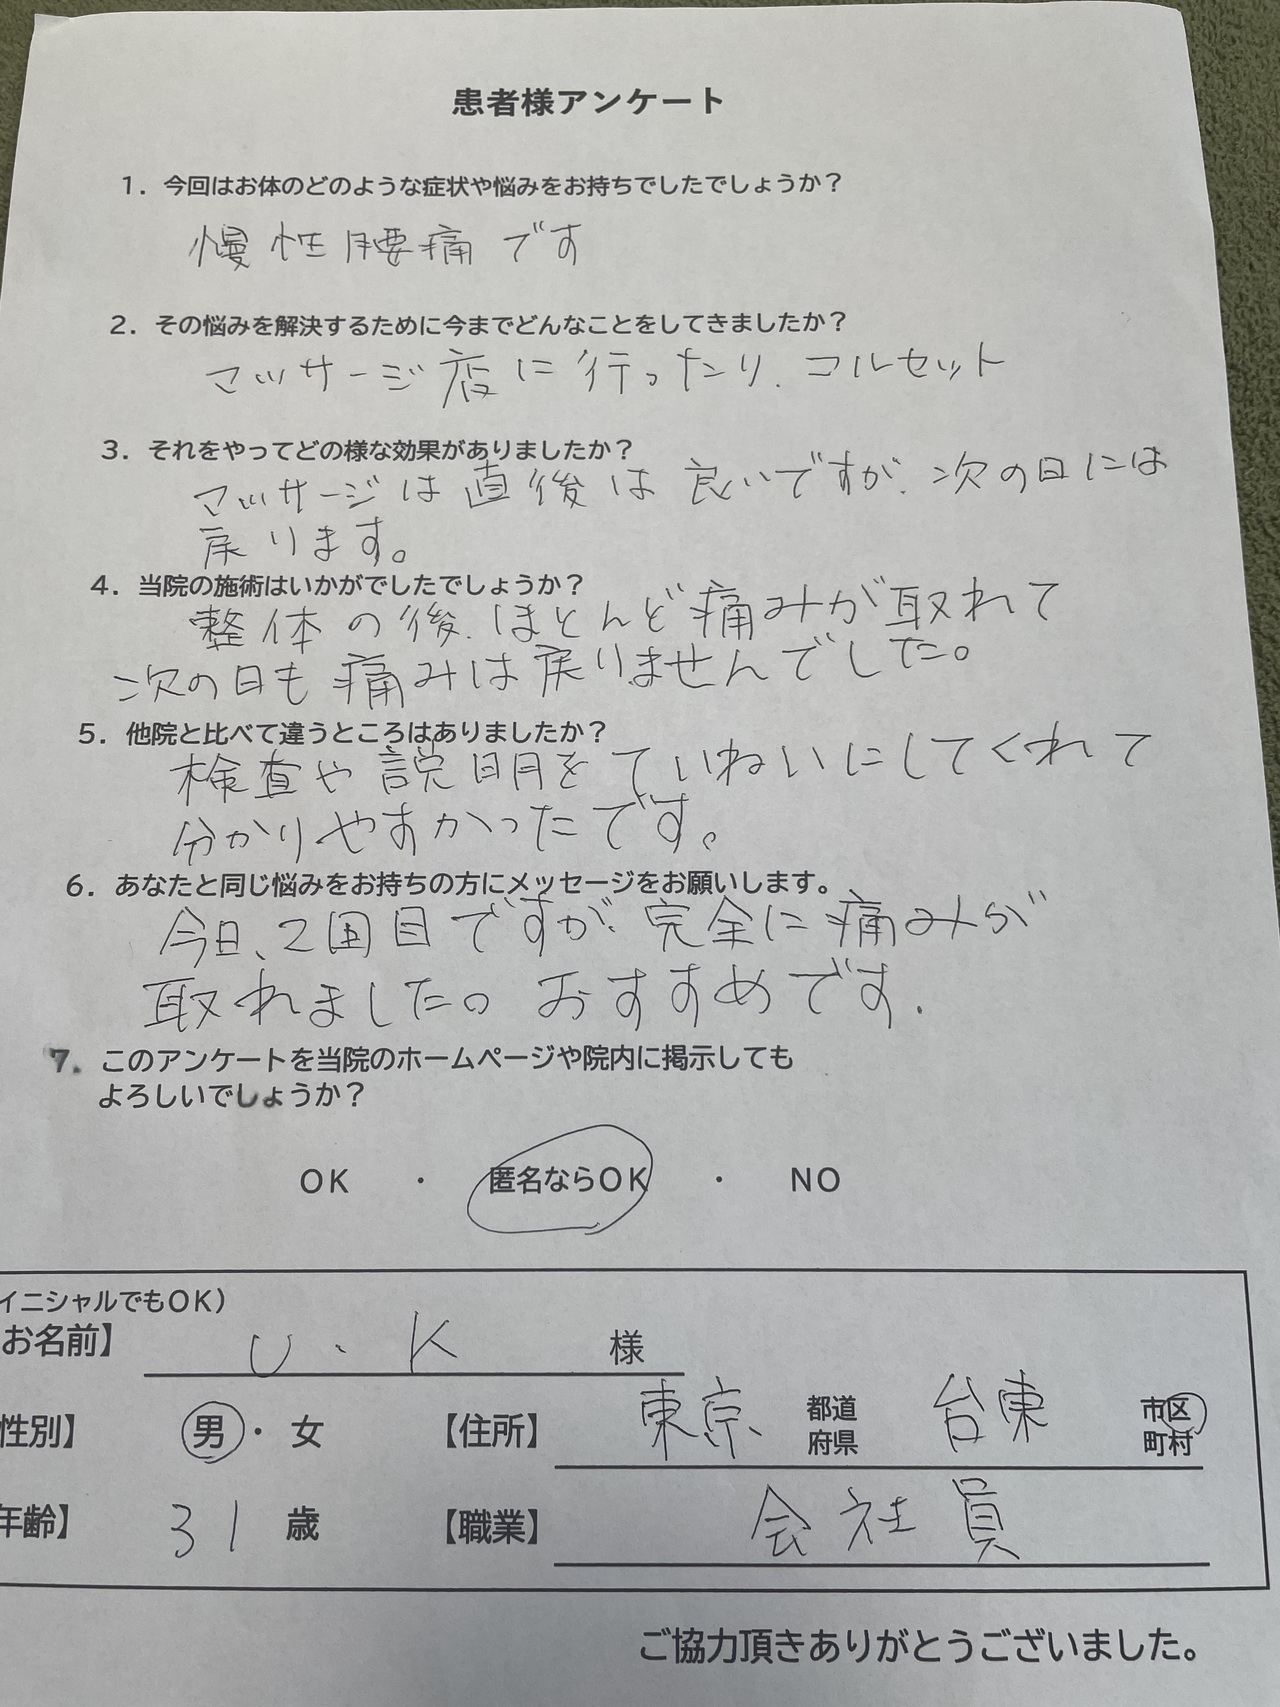 患者様アンケート
1. 今回はお体のどのような症状や悩みをお持ちでしたでしょうか？
慢性腰痛です
2. その悩みを解決するために今までどんなことをしてきましたか？
マッサージ店に行ったり、コルセット
3. それをやってどの様な効果がありましたか？
マッサージは直後は良いですが、次の日には
戻ります。
4. 当院の施術はいかがでしたでしょうか？
整体の後、ほとんど痛みが取れて
次の日も痛みは戻りませんでした。
5. 他院と比べて違うところはありましたか？
検査や説明をていねいにしてくれて
分かりやすかったです。
6. あなたと同じ悩みをお持ちの方にメッセージをお願いします。
今日、2回目ですが、完全に痛みが
取れました。おすすめです.
7. このアンケートを当院のホームページや院内に掲示しても
よろしいでしょうか？
OK ・ 匿名ならOK ・ NO
イニシャルでもOK）
お名前】 U.K 様
性別】 男・女 【住所】 東京 都道府県 台東 市区町村
年齢】 31 歳 【職業】 会社員
ご協力頂きありがとうございました。